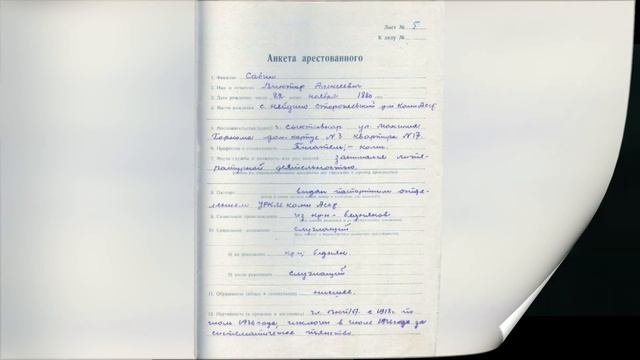 Лист № 5
К делу №
Анкета арестованного
1. Фамилия Савин
2. Имя и отчество Виктор Алексеевич
3. Дата рождения: число 22 месяц ноября 1880
4. Место рождения с. Небдино Сторожевский р-н Коми АССР
5. Местожительство (адрес) г. Сыктывкар ул. Максима
Горького дом № 3 квартира № 17.
6. Профессия и специальность Писатель
7. Место службы и должность или род занятий занимался лите-
ратурной деятельностью.
8. Паспорт выдан паспортным отде-
лением УРКМ Коми АССР
9. Социальное происхождение из кр-н бедняков
10. Социальное положение служащий
а) до революции кр-н бедняк
б) после революции служащий
11. Образование низшее.
12. Партийность чл. ВКП/б/ с 1918 г. по
июль 1936 года, исключен в июле 1936 года за
систематическое пьянство.